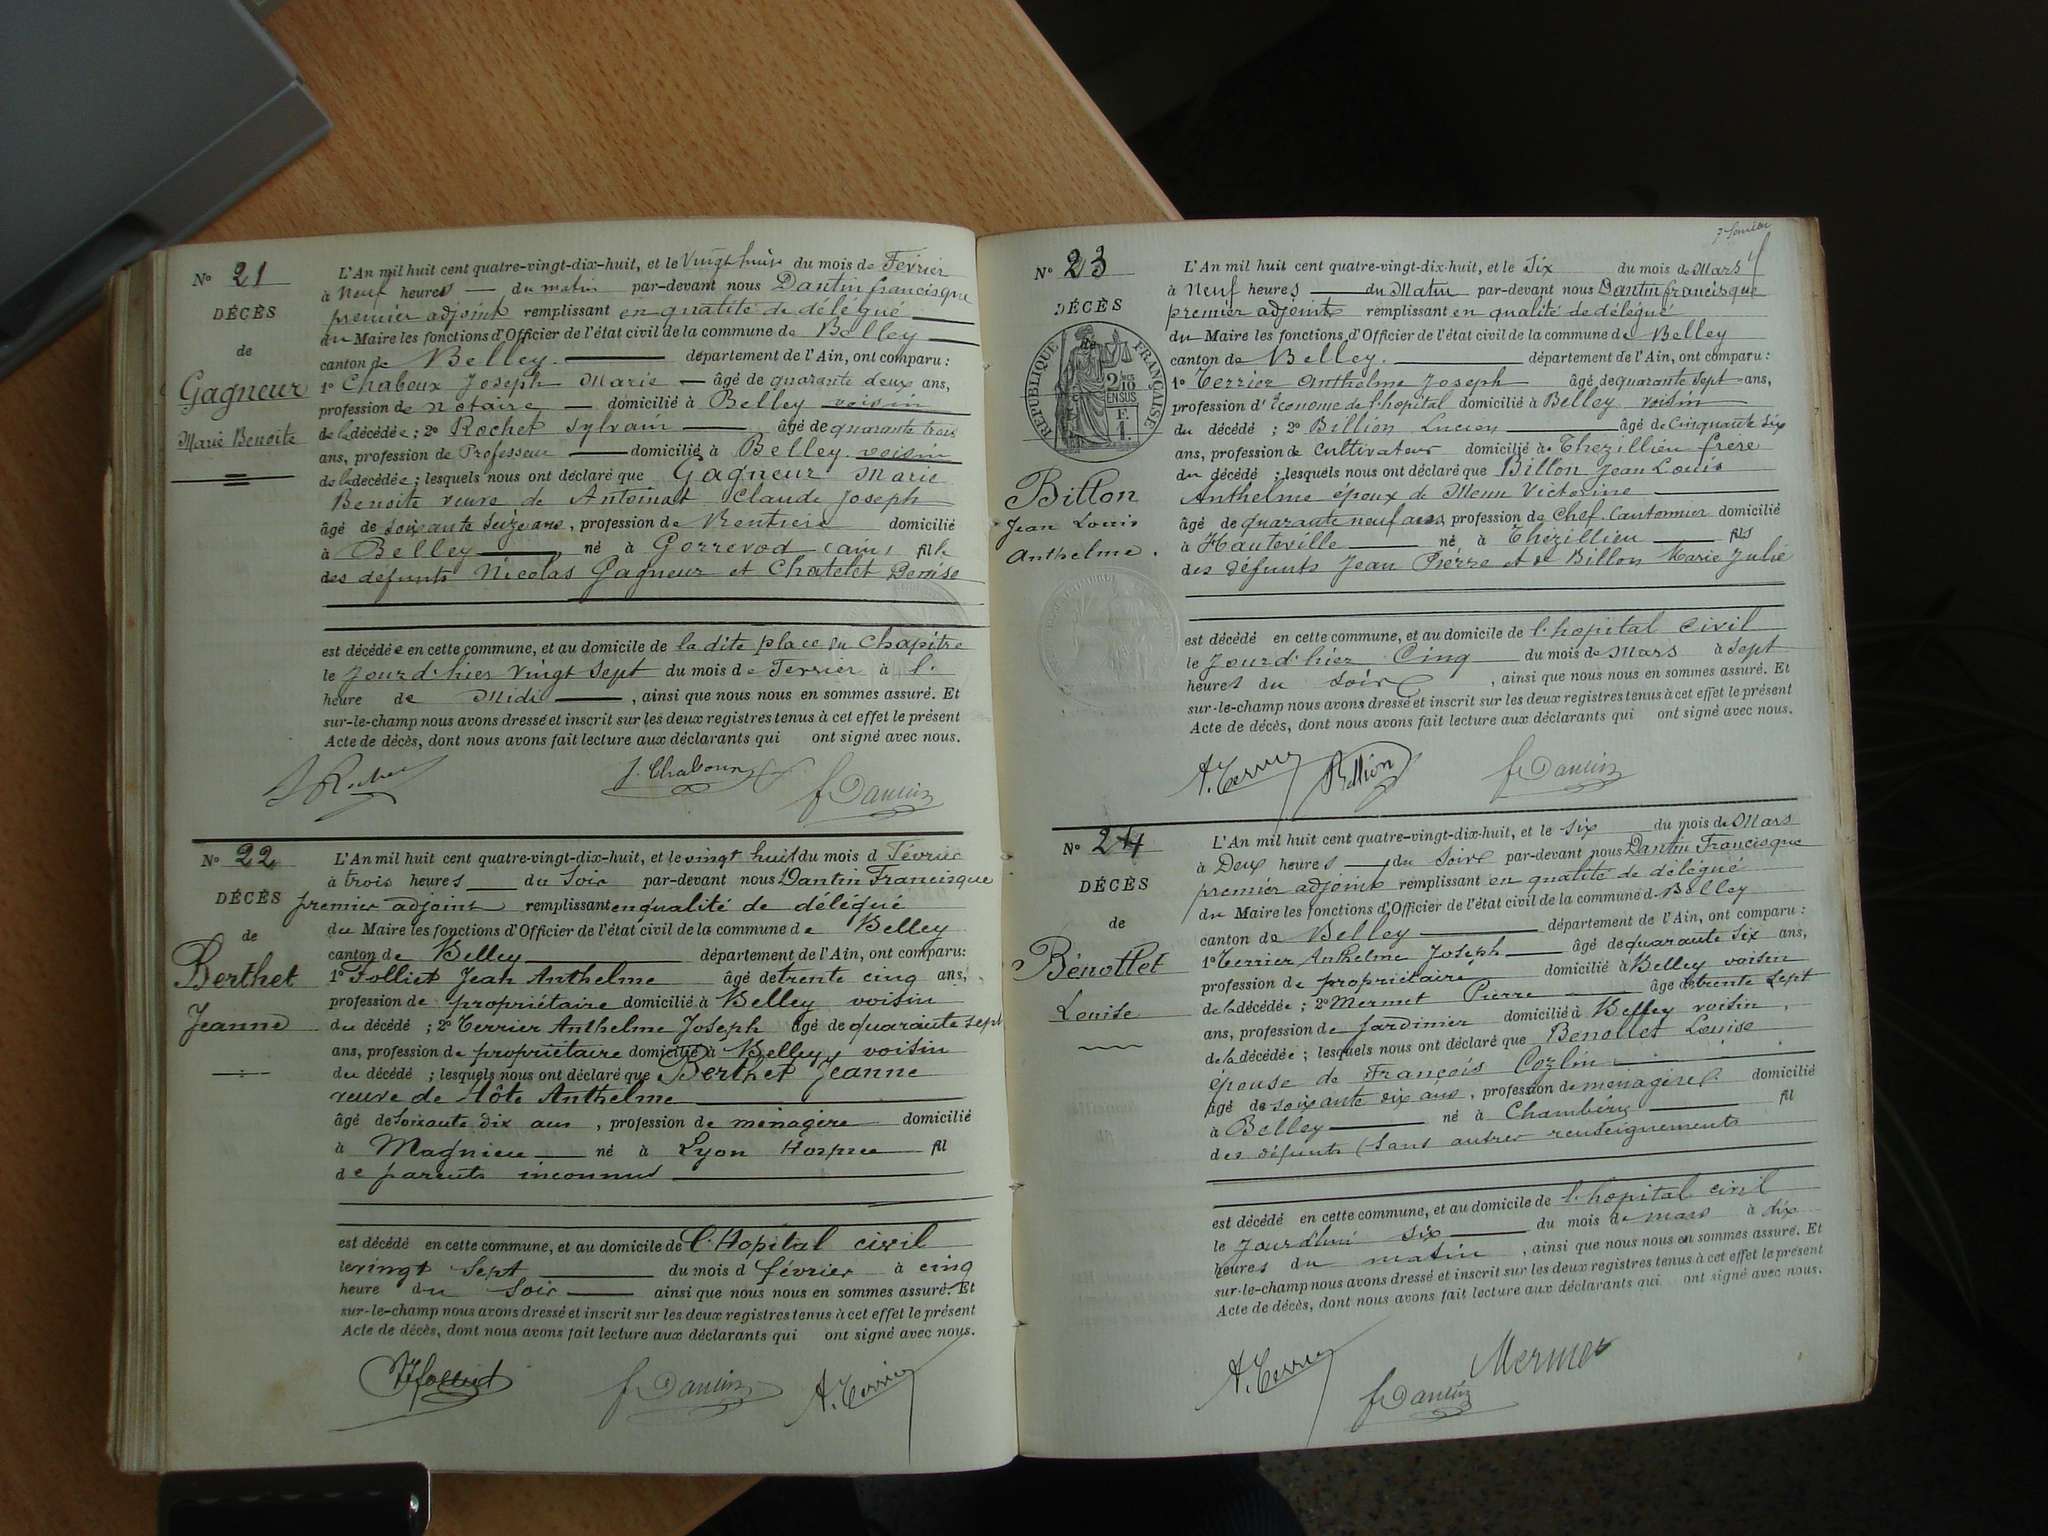 N° 21
DÉCÈS
de
Gagneur
Marie Benoite
L'An mil huit cent quatre-vingt-dix-huit, et le Vingt huit du mois de Février
à Neuf heures — du matin par-devant nous Dantin francisque
premier adjoint remplissant en qualité de délégué
du Maire les fonctions d'Officier de l'état civil de la commune de Belley
canton de Belley. département de l'Ain, ont comparu :
1° Chaboux Joseph Marie — âgé de quarante deux ans,
profession de notaire — domicilié à Belley voisin
de la décédée ; 2° Rochet Sylvain — âgé de quarante trois
ans, profession de Professeur — domicilié à Belley voisin
de la décédée ; lesquels nous ont déclaré que Gagneur Marie
Benoite veuve de Antoinat Claude Joseph
âgé de soixante seize ans, profession de Rentière domicilié
à Belley — né à Gorrevod (ain) fille
des défunts Nicolas Gagneur et Chatelet Denise
est décédée en cette commune, et au domicile de la dite place du Chapitre
le Jour d'hier vingt sept du mois de Ferrier à l'
heure de Midi —, ainsi que nous nous en sommes assuré. Et
sur-le-champ nous avons dressé et inscrit sur les deux registres tenus à cet effet le présent
Acte de décès, dont nous avons fait lecture aux déclarants qui ont signé avec nous.
J. Chaboux
f Dantin
N° 22
DÉCÈS
de
Berthet
Jeanne
L'An mil huit cent quatre-vingt-dix-huit, et le vingt huit du mois d Février
à trois heures — du Soir par-devant nous Dantin Francisque
premier adjoint remplissant en qualité de délégué
du Maire les fonctions d'Officier de l'état civil de la commune de Belley
canton de Belley département de l'Ain, ont comparu:
1° Folliet Jean Anthelme âgé de trente cinq ans,
profession de propriétaire domicilié à Belley voisin
du décédé ; 2° Terrier Anthelme Joseph âgé de quarante sept
ans, profession de propriétaire domicilié à Belley voisin
du décédé ; lesquels nous ont déclaré que Berthet Jeanne
veuve de Hôte Anthelme
âgé de Soixante dix ans, profession de ménagère domicilié
à Magnieu — né à Lyon Hospice fil
de parents inconnus
est décédé en cette commune, et au domicile de l'Hopital civil
le vingt Sept du mois d février à cinq
heure du Soir — ainsi que nous nous en sommes assuré. Et
sur-le-champ nous avons dressé et inscrit sur les deux registres tenus à cet effet le présent
Acte de décès, dont nous avons fait lecture aux déclarants qui ont signé avec nous.
Folliet
f Dantin
A. Terrier
N° 23
DÉCÈS
de
RÉPUBLIQUE FRANÇAISE
2/10
EN SUS
F.
1.
Billon
Jean Louis
Anthelme.
L'An mil huit cent quatre-vingt-dix-huit, et le Six du mois de Mars
à Neuf heures — du Matin par-devant nous Dantin francisque
premier adjoint remplissant en qualité de délégué
du Maire les fonctions d'Officier de l'état civil de la commune de Belley
canton de Belley. département de l'Ain, ont comparu :
1° Terrier Anthelme Joseph âgé de quarante sept ans,
profession d'Econome de l'hopital domicilié à Belley voisin
du décédé ; 2° Billion Lucien âgé de Cinquante six
ans, profession de Cultivateur domicilié à Thezillieu frere
du décédé ; lesquels nous ont déclaré que Billon Jean Louis
Anthelme époux de Menu Victorine
âgé de quarante neuf ans, profession de Chef Cantonnier domicilié
à Hauteville — né à Thézillieu — fils
des défunts Jean Pierre et de Billon Marie Julie
est décédé en cette commune, et au domicile de l'hopital civil
le Jour d'hier Cinq du mois de Mars à Sept
heures du soir, ainsi que nous nous en sommes assuré. Et
sur-le-champ nous avons dressé et inscrit sur les deux registres tenus à cet effet le présent
Acte de décès, dont nous avons fait lecture aux déclarants qui ont signé avec nous.
A. Terrier
Billion
f Dantin
N° 24
DÉCÈS
de
Bénottet
Louise
L'An mil huit cent quatre-vingt-dix-huit, et le six du mois de Mars
à Deux heures — du Soir par-devant nous Dantin Francisque
premier adjoint remplissant en qualité de délégué
du Maire les fonctions d'Officier de l'état civil de la commune d Belley
canton de Belley département de l'Ain, ont comparu :
1° Terrier Anthelme Joseph — âgé de quarante six ans,
profession de propriétaire domicilié à Belley voisin
de la décédée ; 2° Mermet Pierre — âgé de trente sept
ans, profession de Jardinier domicilié à Belley voisin
de la décédée ; lesquels nous ont déclaré que Benottet Louise
épouse de François Cozlin
âgé de soixante dix ans, profession de menagère domicilié
à Belley — né à Chambéry — fil
des défunts (Sans autres renseignements
est décédé en cette commune, et au domicile de l'hopital civil
le Jourd'hui six du mois de mars à dix
heures du matin, ainsi que nous nous en sommes assuré. Et
sur-le-champ nous avons dressé et inscrit sur les deux registres tenus à cet effet le présent
Acte de décès, dont nous avons fait lecture aux déclarants qui ont signé avec nous.
A. Terrier
f Dantin
Mermet